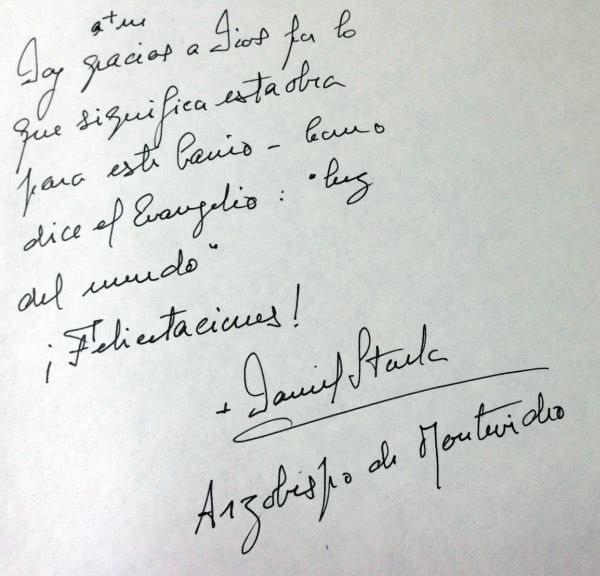 a+m
Doy gracias a Dios por lo
que significa esta obra
para este barrio - como
dice el Evangelio : "luz
del mundo"
¡Felicitaciones!
+ Daniel Sturla
Arzobispo de Montevideo